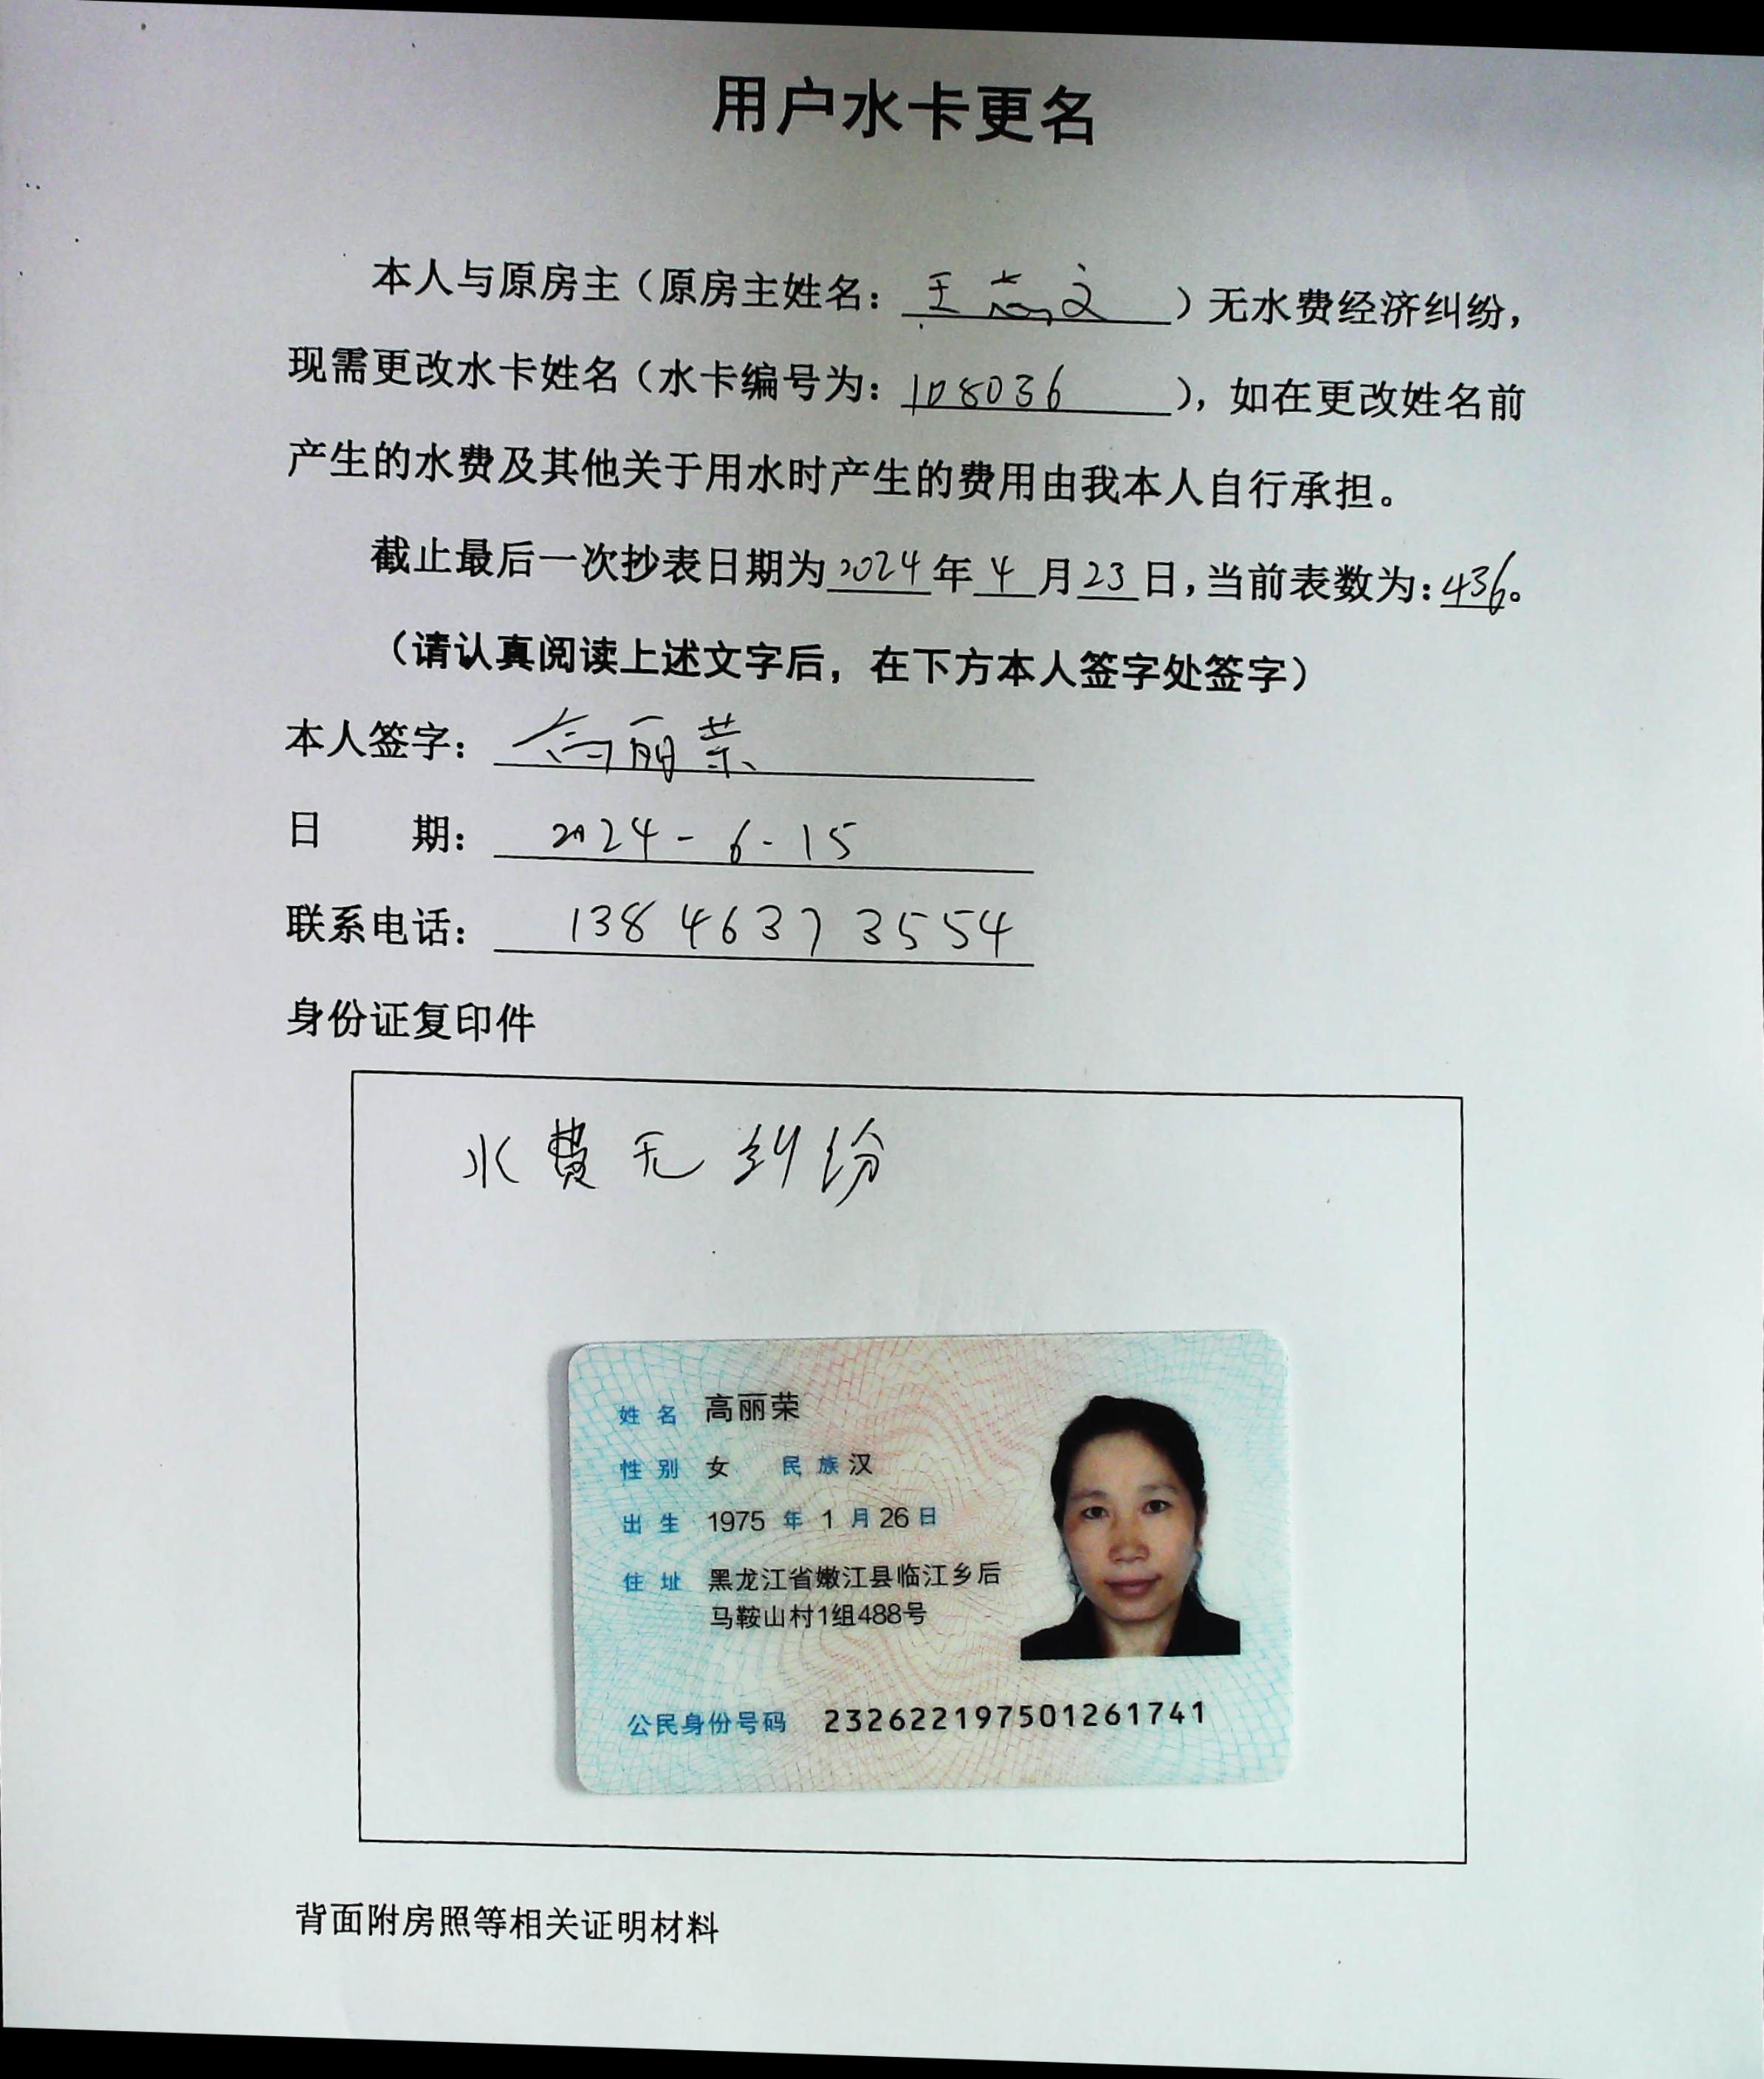 用户水卡更名
本人与原房主（原房主姓名：王 文）无水费经济纠纷，
现需更改水卡姓名（水卡编号为：108036），如在更改姓名前
产生的水费及其他关于用水时产生的费用由我本人自行承担。
截止最后一次抄表日期为2024年4月23日，当前表数为：436。
（请认真阅读上述文字后，在下方本人签字处签字）
本人签字：高丽荣
日 期：2024-6-15
联系电话：13846373554
身份证复印件
水费无纠纷
姓名 高丽荣
性别 女 民族 汉
出生 1975 年 1 月 26 日
住址 黑龙江省嫩江县临江乡后
马鞍山村1组488号
公民身份号码 232622197501261741
背面附房照等相关证明材料